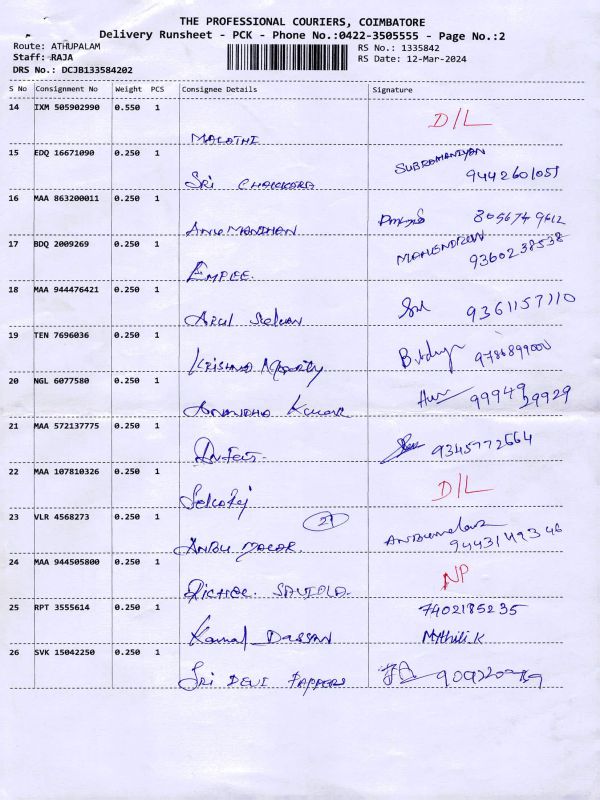 THE PROFESSIONAL COURIERS, COIMBATORE
Delivery Runsheet - PCK - Phone No.:0422-3505555 - Page No.:2
Route: ATHUPALAM RS No.: 1335842
Staff: RAJA RS Date: 12-Mar-2024
DRS No.: DCJB133584202
S No Consignment No Weight PCS Consignee Details Signature
14 IXM 505902990 0.550 1
MALATHI D/L
15 EDQ 16671090 0.250 1
SRI SUBRAMANIYAN 9442601051
16 MAA 863200011 0.250 1
17 BDQ 2009269 0.250 1
EMPLEE. 9360238538
18 MAA 944476421 0.250 1
ARUL Selvan 9361157110
19 TEN 7696036 0.250 1
KRISHNA
20 NGL 6077580 0.250 1
Kumar 99949 29929
21 MAA 572137775 0.250 1
9345772664
22 MAA 107810326 0.250 1
Selvaraj D/L
23 VLR 4568273 0.250 1 21
ANBU
24 MAA 944505800 0.250 1
NP
25 RPT 3555614 0.250 1
7402185235
Kamal DASSAN Mythili.K
26 SVK 15042250 0.250 1
SRI DEVI PAPPERS